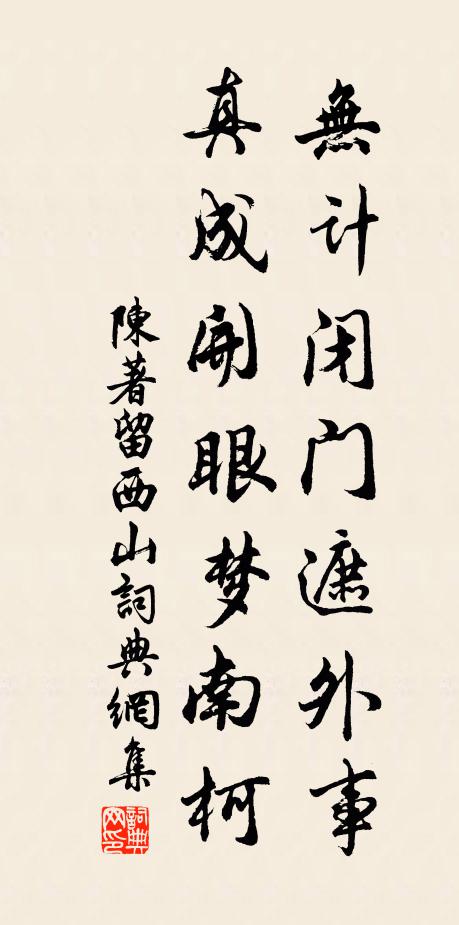 無计闭门遮外事
真成開眼梦南柯
陳著留西山詞典網集
詞典网印